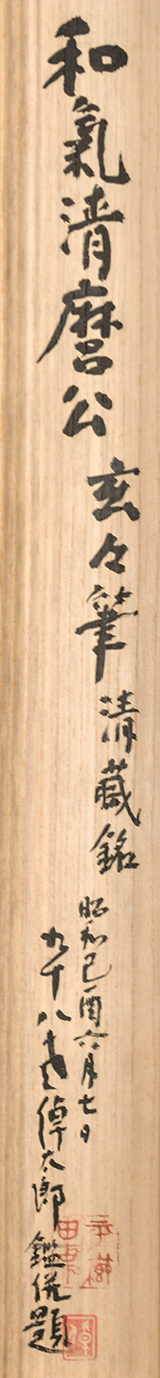 和氣清麿公
玄々筆
清蔵銘
昭和己酉六月七日
九十八叟倬太郎鑑併題